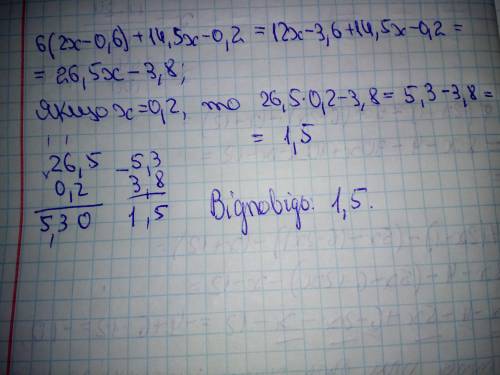 6(2x-0,6)+14,5x-0,2 = 12x-3,6+14,5x-0,2 =
= 26,5x - 3,8;
Якщо x=0,2, то 26,5·0,2-3,8 = 5,3-3,8 =
= 1,5
26,5
0,2
5,30
-5,3
3,8
1,5
Відповідь: 1,5.